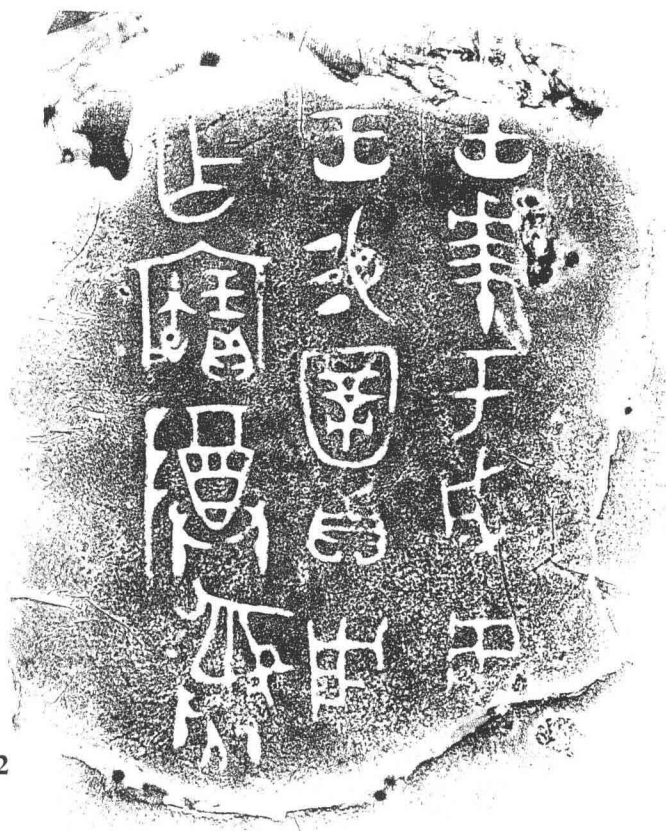 王𠦪于成周
王易圉貝用
乍寶尊彝
2